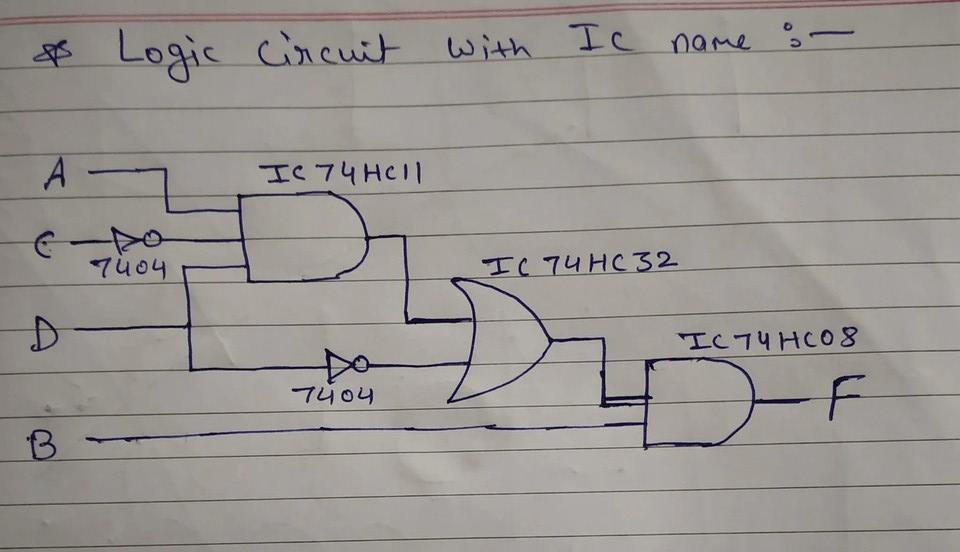 * Logic Circuit with IC name :-
IC 74HC11
A
C
7404
IC 74HC32
D
IC 74HC08
7404
F
B